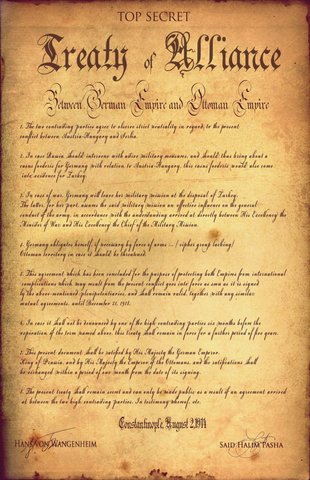 TOP SECRET
Treaty of Alliance
Between German Empire and Ottoman Empire
1. The two contracting parties agree to observe strict neutrality in regard to the present
conflict between Austria-Hungary and Serbia.
2. In case Russia should intervene with active military measures, and should thus bring about a
casus foederis for Germany with relation to Austria-Hungary, this casus foederis would also come
into existence for Turkey.
3. In case of war, Germany will leave her military mission at the disposal of Turkey.
The latter, for her part, assures the said military mission an effective influence on the general
conduct of the army, in accordance with the understanding arrived at directly between His Excellency the
Minister of War and His Excellency the Chief of the Military Mission.
4. Germany obligates herself, if necessary by force of arms ... ( cipher group lacking)
Ottoman territory in case it should be threatened.
5. This agreement which has been concluded for the purpose of protecting both Empires from international
complications which may result from the present conflict goes into force as soon as it is signed
by the above-mentioned plenipotentiaries, and shall remain valid, together with any similar
mutual agreements, until December 31, 1918.
6. In case it shall not be denounced by one of the high contracting parties six months before the
expiration of the term named above, this treaty shall remain in force for a further period of five years.
7. This present document shall be ratified by His Majesty the German Emperor,
King of Prussia, and by His Majesty the Emperor of the Ottomans, and the ratifications shall
be exchanged within a period of one month from the date of its signing.
8. The present treaty shall remain secret and can only be made public as a result of an agreement arrived
at between the two high contracting parties. In testimony whereof, etc.
Constantinople, August 2,1914
HANS VON WANGENHEIM
SAID HALIM PASHA